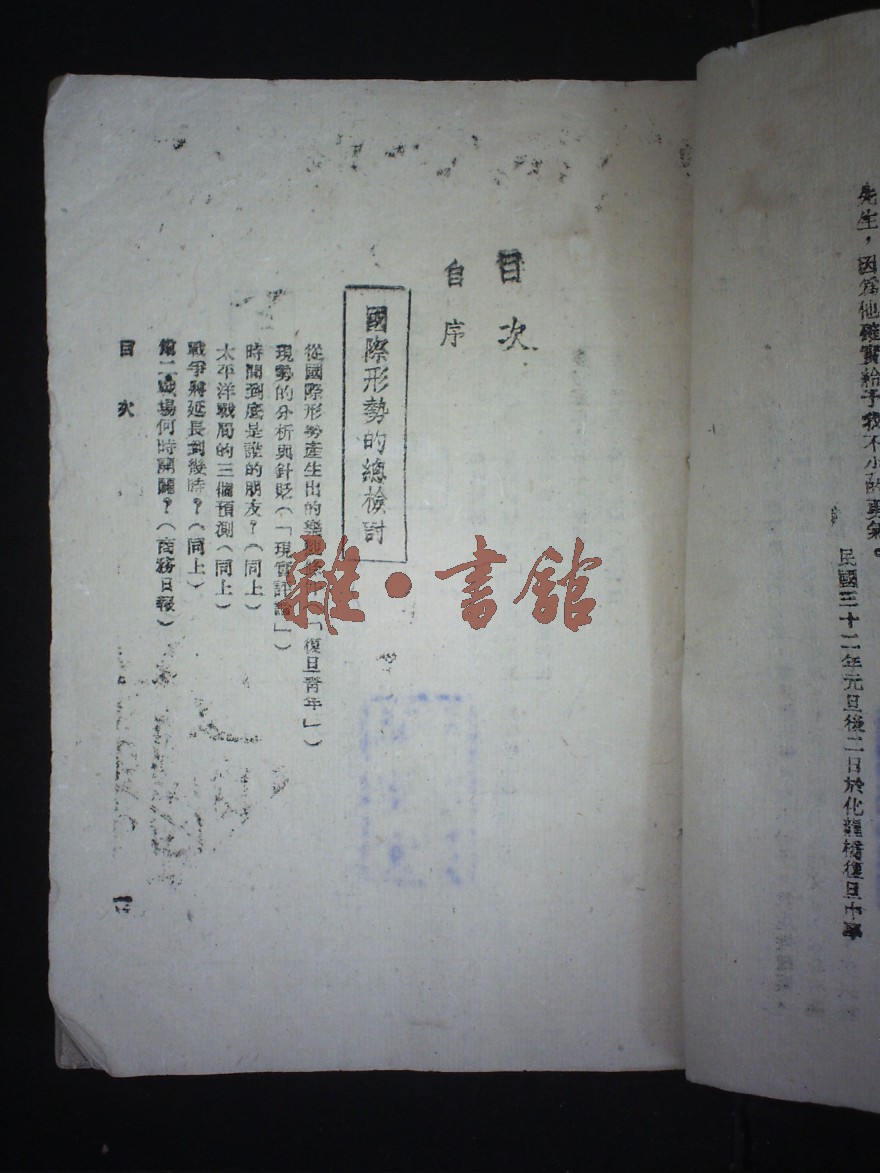 先生，因為他確實給予我不小的勇氣。
民國三十二年元旦後二日於化龍橋復旦中學
目次
自序
國際形勢的總檢討
從國際形勢產生出的樂觀「復旦青年」）
現勢的分析與針貶（「現實評論」）
時間到底是誰的朋友？（同上）
太平洋戰局的三個預測（同上）
戰爭將延長到幾時？（同上）
第二戰場何時開闢？（商務日報）
目次
一
雜·書館